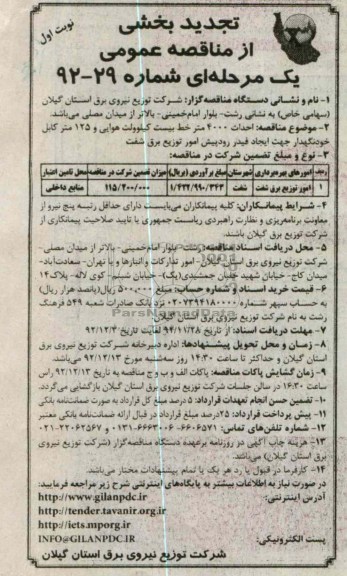 نوبت اول
تجدید بخشی
از مناقصه عمومی
یک مرحله‌ای شماره ۲۹-۹۲
۱- نام و نشانی دستگاه مناقصه‌گزار: شرکت توزیع نیروی برق استان گیلان
(سهامی خاص) به نشانی رشت- بلوار امام‌خمینی- بالاتر از میدان مصلی می‌باشد.
۲- موضوع مناقصه: احداث ۲۰۰۰ متر خط بیست کیلوولت هوایی و ۱۲۵ متر کابل
خودنگهدار جهت ایجاد فیدر رودپیش امور توزیع برق شفت
۳- نوع و مبلغ تضمین شرکت در مناقصه:
ردیف امورهای بهره‌برداری شهرستان مبلغ برآوردی (ریال) میزان تضمین شرکت در مناقصه محل تامین اعتبار
۱ امور توزیع برق شفت شفت ۱/۶۳۲/۹۹۰/۳۴۳ ۱۱۵/۲۰۰/۰۰۰ منابع داخلی
۴- شرایط پیمانکاران: کلیه پیمانکاران می‌بایست دارای حداقل رتبه پنج نیرو از
معاونت برنامه‌ریزی و نظارت راهبردی ریاست جمهوری یا تایید صلاحیت پیمانکاری از
شرکت توزیع برق گیلان باشند.
۵- محل دریافت اسناد مناقصه: رشت- بلوار امام‌خمینی- بالاتر از میدان مصلی-
شرکت توزیع نیروی برق استان گیلان- امور تدارکات و انبارها و یا تهران- سعادت‌آباد-
میدان کاج- خیابان شهید جمشیدی(یک)- خیابان شبنم- کوی لاله- پلاک ۱۴
۶- قیمت خرید اسناد و شماره حساب: مبلغ ۵۰۰,۰۰۰ ریال(پانصد هزار ریال)
به حساب سپهر شماره ۰۲۰۷۳۹۴۱۸۰۰۰۰ نزد بانک صادرات شعبه ۵۴۹ فرهنگ
رشت به نام شرکت توزیع نیروی برق استان گیلان
۷- مهلت دریافت اسناد: از تاریخ ۹۲/۱۱/۲۸ لغایت تاریخ ۹۲/۱۲/۳
۸- زمان و محل تحویل پیشنهادها: اداره دبیرخانه شرکت توزیع نیروی برق
استان گیلان و حداکثر تا ساعت ۱۴:۳۰ روز سه‌شنبه مورخ ۹۲/۱۲/۱۳ می‌باشد.
۹- زمان گشایش پاکات مناقصه: پاکات الف و ب و ج مناقصه به تاریخ ۹۲/۱۲/۱۳ راس
ساعت ۱۶:۳۰ در سالن جلسات شرکت توزیع نیروی برق استان گیلان بازگشایی می‌گردد.
۱۰- تضمین حسن انجام تعهدات قرارداد: ۵ درصد مبلغ کل قرارداد به صورت ضمانت‌نامه بانکی
۱۱- پیش پرداخت قرارداد: ۲۵درصد مبلغ قرارداد در قبال ارائه ضمانت‌نامه بانکی معتبر
۱۲- شماره تلفن‌های تماس: ۶۶۰۶۵۷۱-۶۶۶۳۰۰۶-۰۱۳۱ و ۲۲۰۶۲۵۶۷-۰۲۱
۱۳- هزینه چاپ آگهی در روزنامه برعهده دستگاه مناقصه‌گزار (شرکت توزیع نیروی
برق استان گیلان) می‌باشد.
۱۴- کارفرما در قبول یا رد هر یک یا تمام پیشنهادات مختار می‌باشد.
در صورت نیاز به اطلاعات بیشتر به پایگاه‌های اینترنتی شرح زیر مراجعه فرمایید:
آدرس اینترنتی: http://www.gilanpdc.ir
http://tender.tavanir.org.ir
http://iets.mporg.ir
پست الکترونیکی: INFO@GILANPDC.IR
شرکت توزیع نیروی برق استان گیلان
ParsNamadData